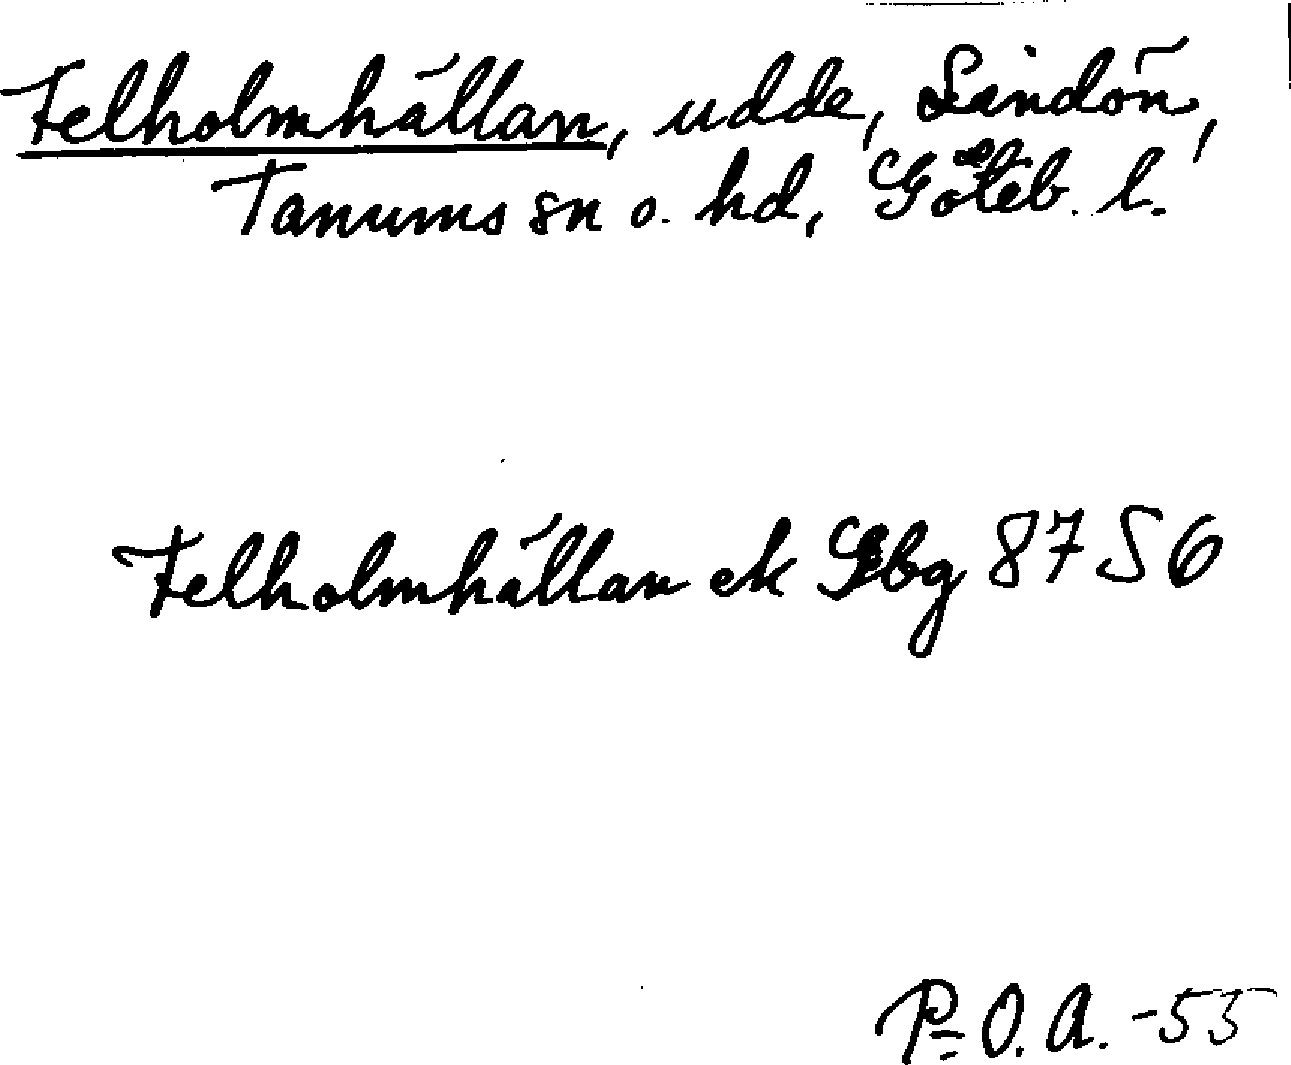 Felholmhällan, udde, Lindön,
Tanums sn o. hd, Göteb. l.
Felholmhällan ek Gbg 8756
P. O. A. -55